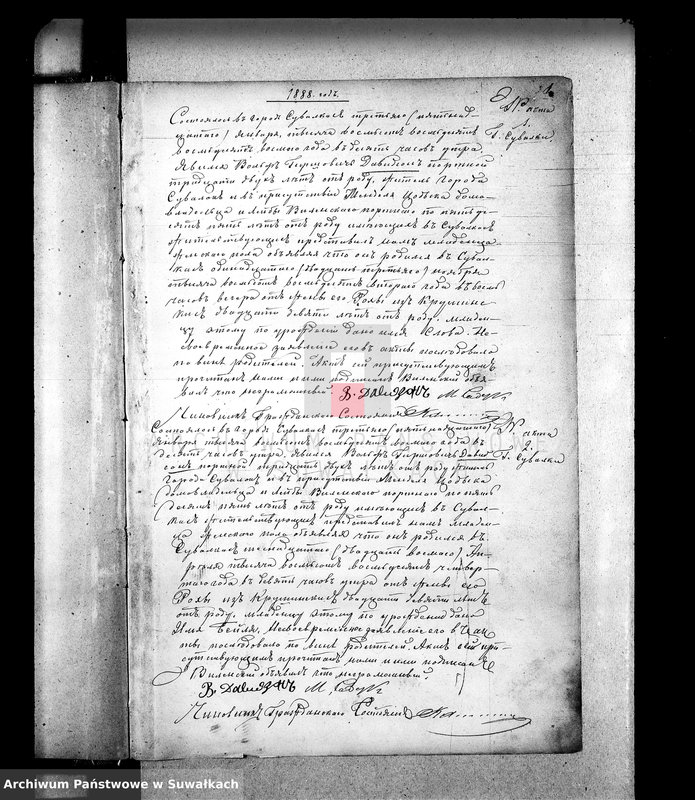 1888. годъ.
№ акта
1.
Г. Сувалки.
Состоялось въ городѣ Сувалкахъ третьяго (пятнад-
цатаго) Января, тысяча восемьсотъ восемьдесятъ
восьмаго года въ десять часовъ утра.
Явился Вольфъ Гершовичъ Давидзонъ портной
тридцати двухъ лѣтъ отъ роду, житель города
Сувалокъ и въ присутствіи Менделя домо-
владѣльца и Лейбы Виленскаго портнаго по пятьде-
сятъ пять лѣтъ отъ роду имѣющихъ въ Сувалкахъ
жительствующихъ предъявилъ намъ младенца
женскаго пола объявляя что онъ родился въ Сувал-
кахъ (двадцать третьяго) ноября
тысяча восемьсотъ восемьдесятъ втораго года въ восемь
часовъ отъ жены его Рохи изъ
двадцати девяти лѣтъ отъ роду. младен-
цу этому по урожденіи дано имя Слова. Не-
своевременное заявленіе его въ акты послѣдовало
по винѣ родителей. Актъ сей присутствующимъ
прочитанъ нами и ими подписанъ Виленскій объя-
вилъ что неграмотный. В. Давидзонъ М.
Чиновникъ Гражданскаго Состоянія
№ акта
2.
Г. Сувалки
Состоялось въ городѣ Сувалкахъ третьяго (пятнадцатаго)
Января тысяча восемьсотъ восемьдесятъ восьмаго года въ
десять часовъ утра. явился Вольфъ Гершовичъ Давид-
зонъ портной тридцати двухъ лѣтъ отъ роду житель
города Сувалокъ и въ присутствіи Менделя
домовладѣльца и Лейбы Виленскаго портнаго по пять-
десятъ пять лѣтъ отъ роду имѣющихъ въ Сувал-
кахъ жительствующихъ предъявилъ намъ младен-
ца женскаго пола объявляя что онъ родился въ
Сувалкахъ шестнадцатаго (двадцать восьмаго) Ап-
рѣля тысяча восемьсотъ восемьдесятъ четвер-
таго года въ девять часовъ утра отъ жены его
Рохи изъ двадцати девяти лѣтъ
отъ роду. младенцу этому по урожденіи дано
имя Бейля. Несвоевременное заявленіе его въ ак-
ты послѣдовало по винѣ родителей. Актъ сей при-
сутствующимъ прочитанъ нами и ими подписанъ
Виленскій объявилъ что неграмотный.
В. Давидзонъ М.
Чиновникъ Гражданскаго Состоянія
Archiwum Państwowe w Suwałkach